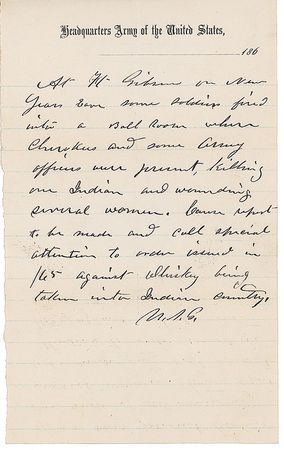 Headquarters Army of the United States,
186
At Ft Gibson on New
Years Eave some soldiers fired
into a Ball Room where
Cherokees and some Army
officers were present, killing
one Indian and wounding
several women. Cause report
to be made and call special
attention to order issued in
/65 against whiskey being
taken into Indian country.
U.S.G.